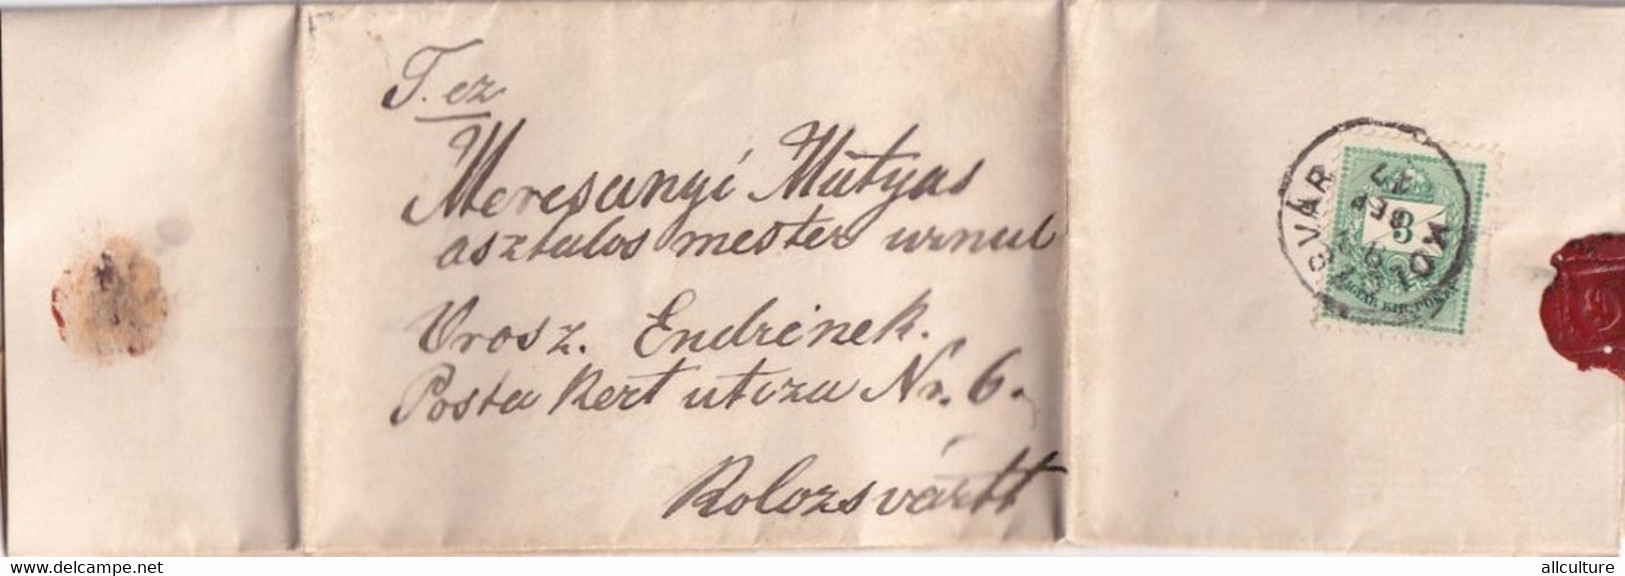 T. ez
Meresanyi Mátyás
asztalos mester urnul
Vrosz. Endrének.
Posta Kert utcza Nr. 6.
Kolozsvártt
KOLOZSVÁR
3
MAGYAR KIR. POSTA
www.delcampe.net
allculture